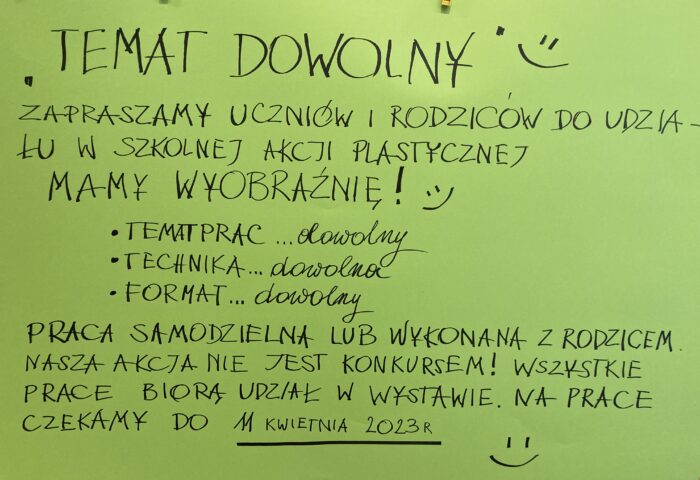 "TEMAT DOWOLNY"
ZAPRASZAMY UCZNIÓW I RODZICÓW DO UDZIA-
ŁU W SZKOLNEJ AKCJI PLASTYCZNEJ
MAMY WYOBRAŹNIĘ!
• TEMAT PRAC ... dowolny
• TECHNIKA... dowolna
• FORMAT... dowolny
PRACA SAMODZIELNA LUB WYKONANA Z RODZICEM.
NASZA AKCJA NIE JEST KONKURSEM! WSZYSTKIE
PRACE BIORĄ UDZIAŁ W WYSTAWIE. NA PRACE
CZEKAMY DO 11 KWIETNIA 2023R